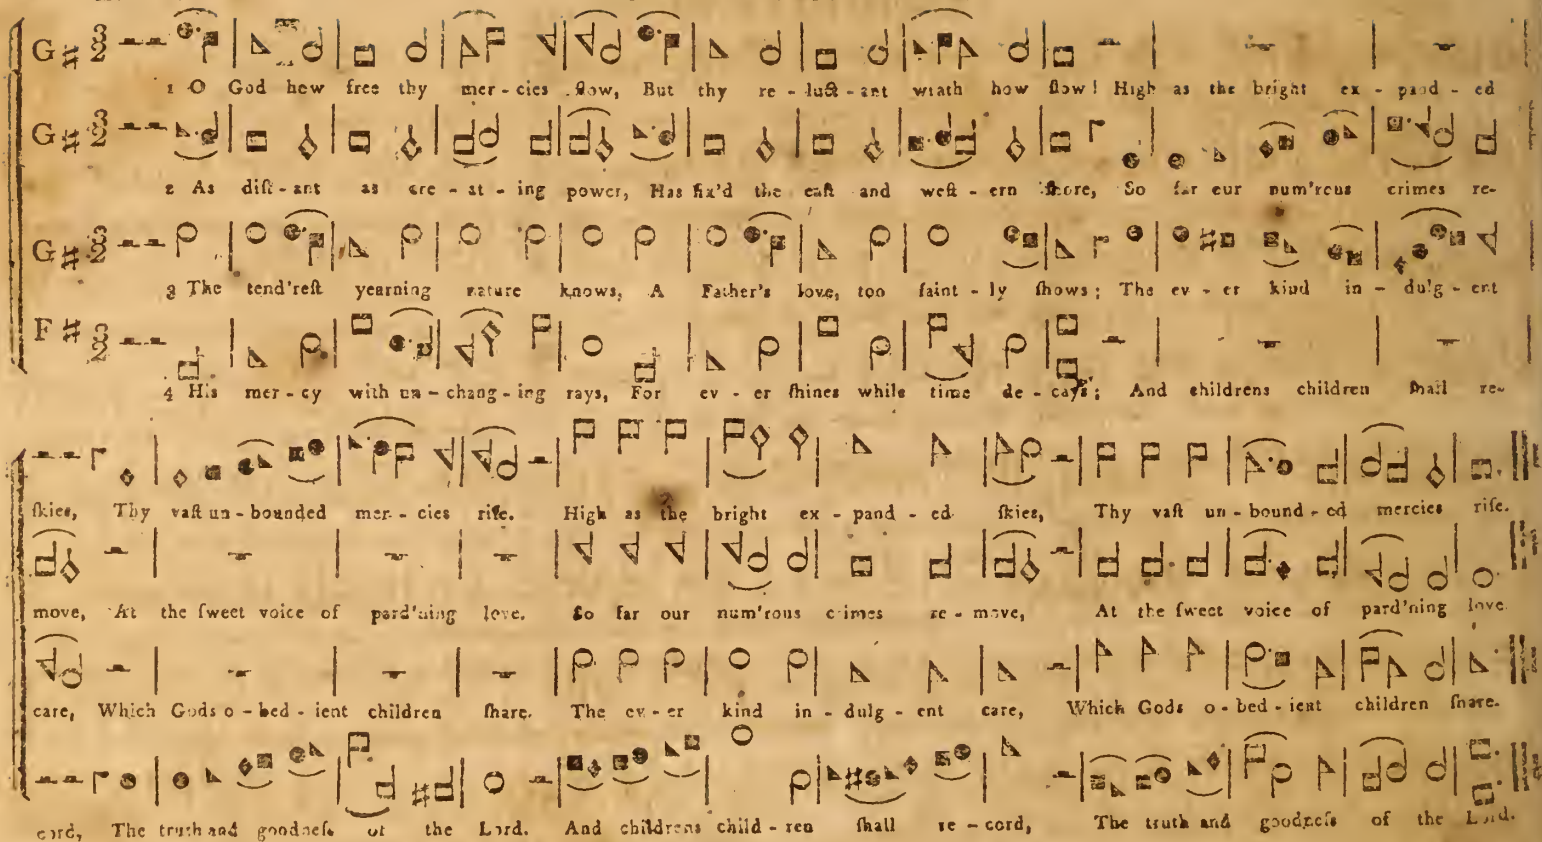 G
1 O God how free thy mer-cies flow, But thy re-luct-ant wrath how ſlow! High as the bright ex-pand-ed
G
2 As diſt-ant as cre-at-ing power, Has fix'd the eaſt and weſt-ern ſhore, So far our num'rous crimes re-
G
3 The tend'reſt yearning nature knows, A Father's love, too faint-ly ſhows; The ev-er kind in-dulg-ent
F
4 His mer-cy with un-chang-ing rays, For ev-er ſhines while time de-cays; And childrens children ſhall re-
ſkies, Thy vaſt un-bounded mer-cies riſe. High as the bright ex-pand-ed ſkies, Thy vaſt un-bound-ed mercies riſe.
move, At the ſweet voice of pard'ning love. So far our num'rous crimes re-move, At the ſweet voice of pard'ning love.
care, Which Gods o-bed-ient children ſhare. The ev-er kind in-dulg-ent care, Which Gods o-bed-ient children ſhare.
cord, The truth and goodneſs of the Lord. And childrens child-ren ſhall re-cord, The truth and goodneſs of the Lord.